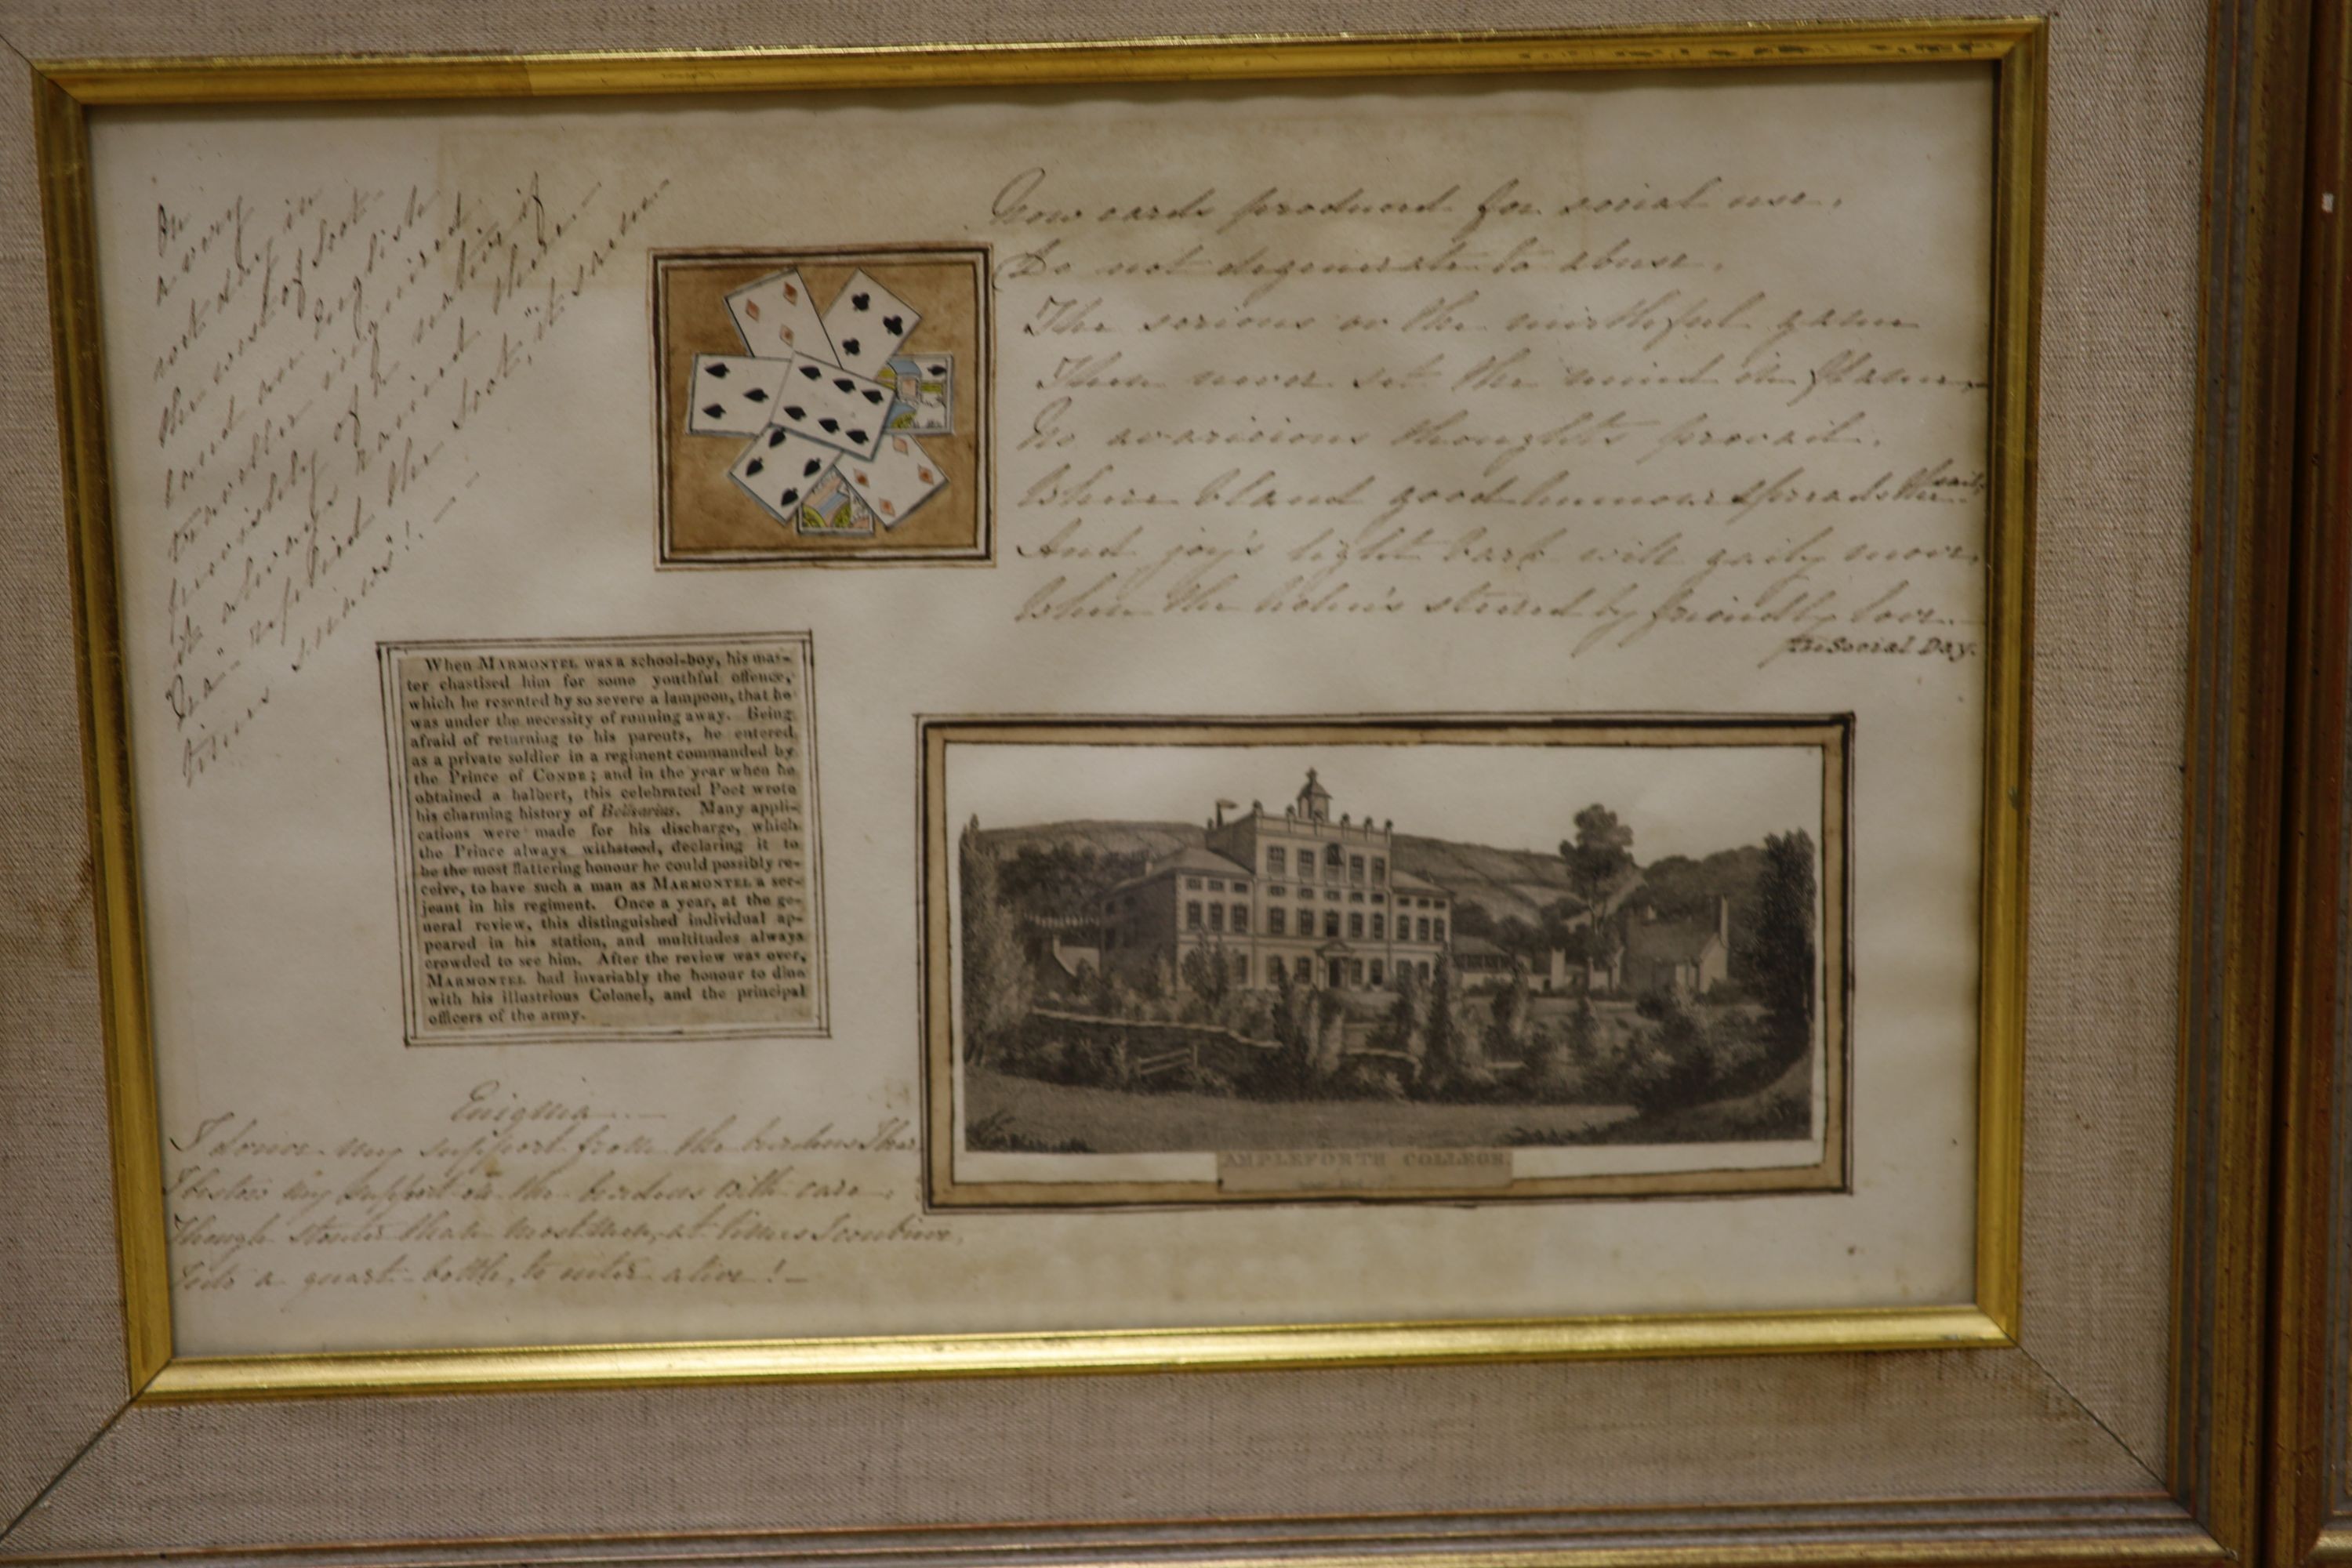 On
a very
wet day in
the west of Scot-
land an English
traveller inquired
peevishly of a native if
it always rained there.—
"Na" replied the Scot, "it snaws
times snaws"!——
Now cards produced for social use,
Do not degenerate to abuse,
The serious or the mirthful game
Then never set the mind in flame,
No avaricious thoughts prevail,
Where bland good humour spreads the sail;
And joy's light bark will gaily move,
When the helm's steered by friendly love.—
The Social Day.
When MARMONTEL was a school-boy, his mas-
ter chastised him for some youthful offence,
which he resented by so severe a lampoon, that he
was under the necessity of running away. Being
afraid of returning to his parents, he entered
as a private soldier in a regiment commanded by
the Prince of CONDE; and in the year when he
obtained a halbert, this celebrated Poet wrote
his charming history of Belisarius. Many appli-
cations were made for his discharge, which
the Prince always withstood, declaring it to
be the most flattering honour he could possibly re-
ceive, to have such a man as MARMONTEL a ser-
jeant in his regiment. Once a year, at the ge-
neral review, this distinguished individual ap-
peared in his station, and multitudes always
crowded to see him. After the review was over,
MARMONTEL had invariably the honour to dine
with his illustrious Colonel, and the principal
officers of the army.
Enigma.—
I derive my support from the burdens I bear,
I bestow my support on the burdens with care:
Though stouter than most men, at times I contrive,
Into a quart bottle, to enter alive!—
AMPLEFORTH COLLEGE.